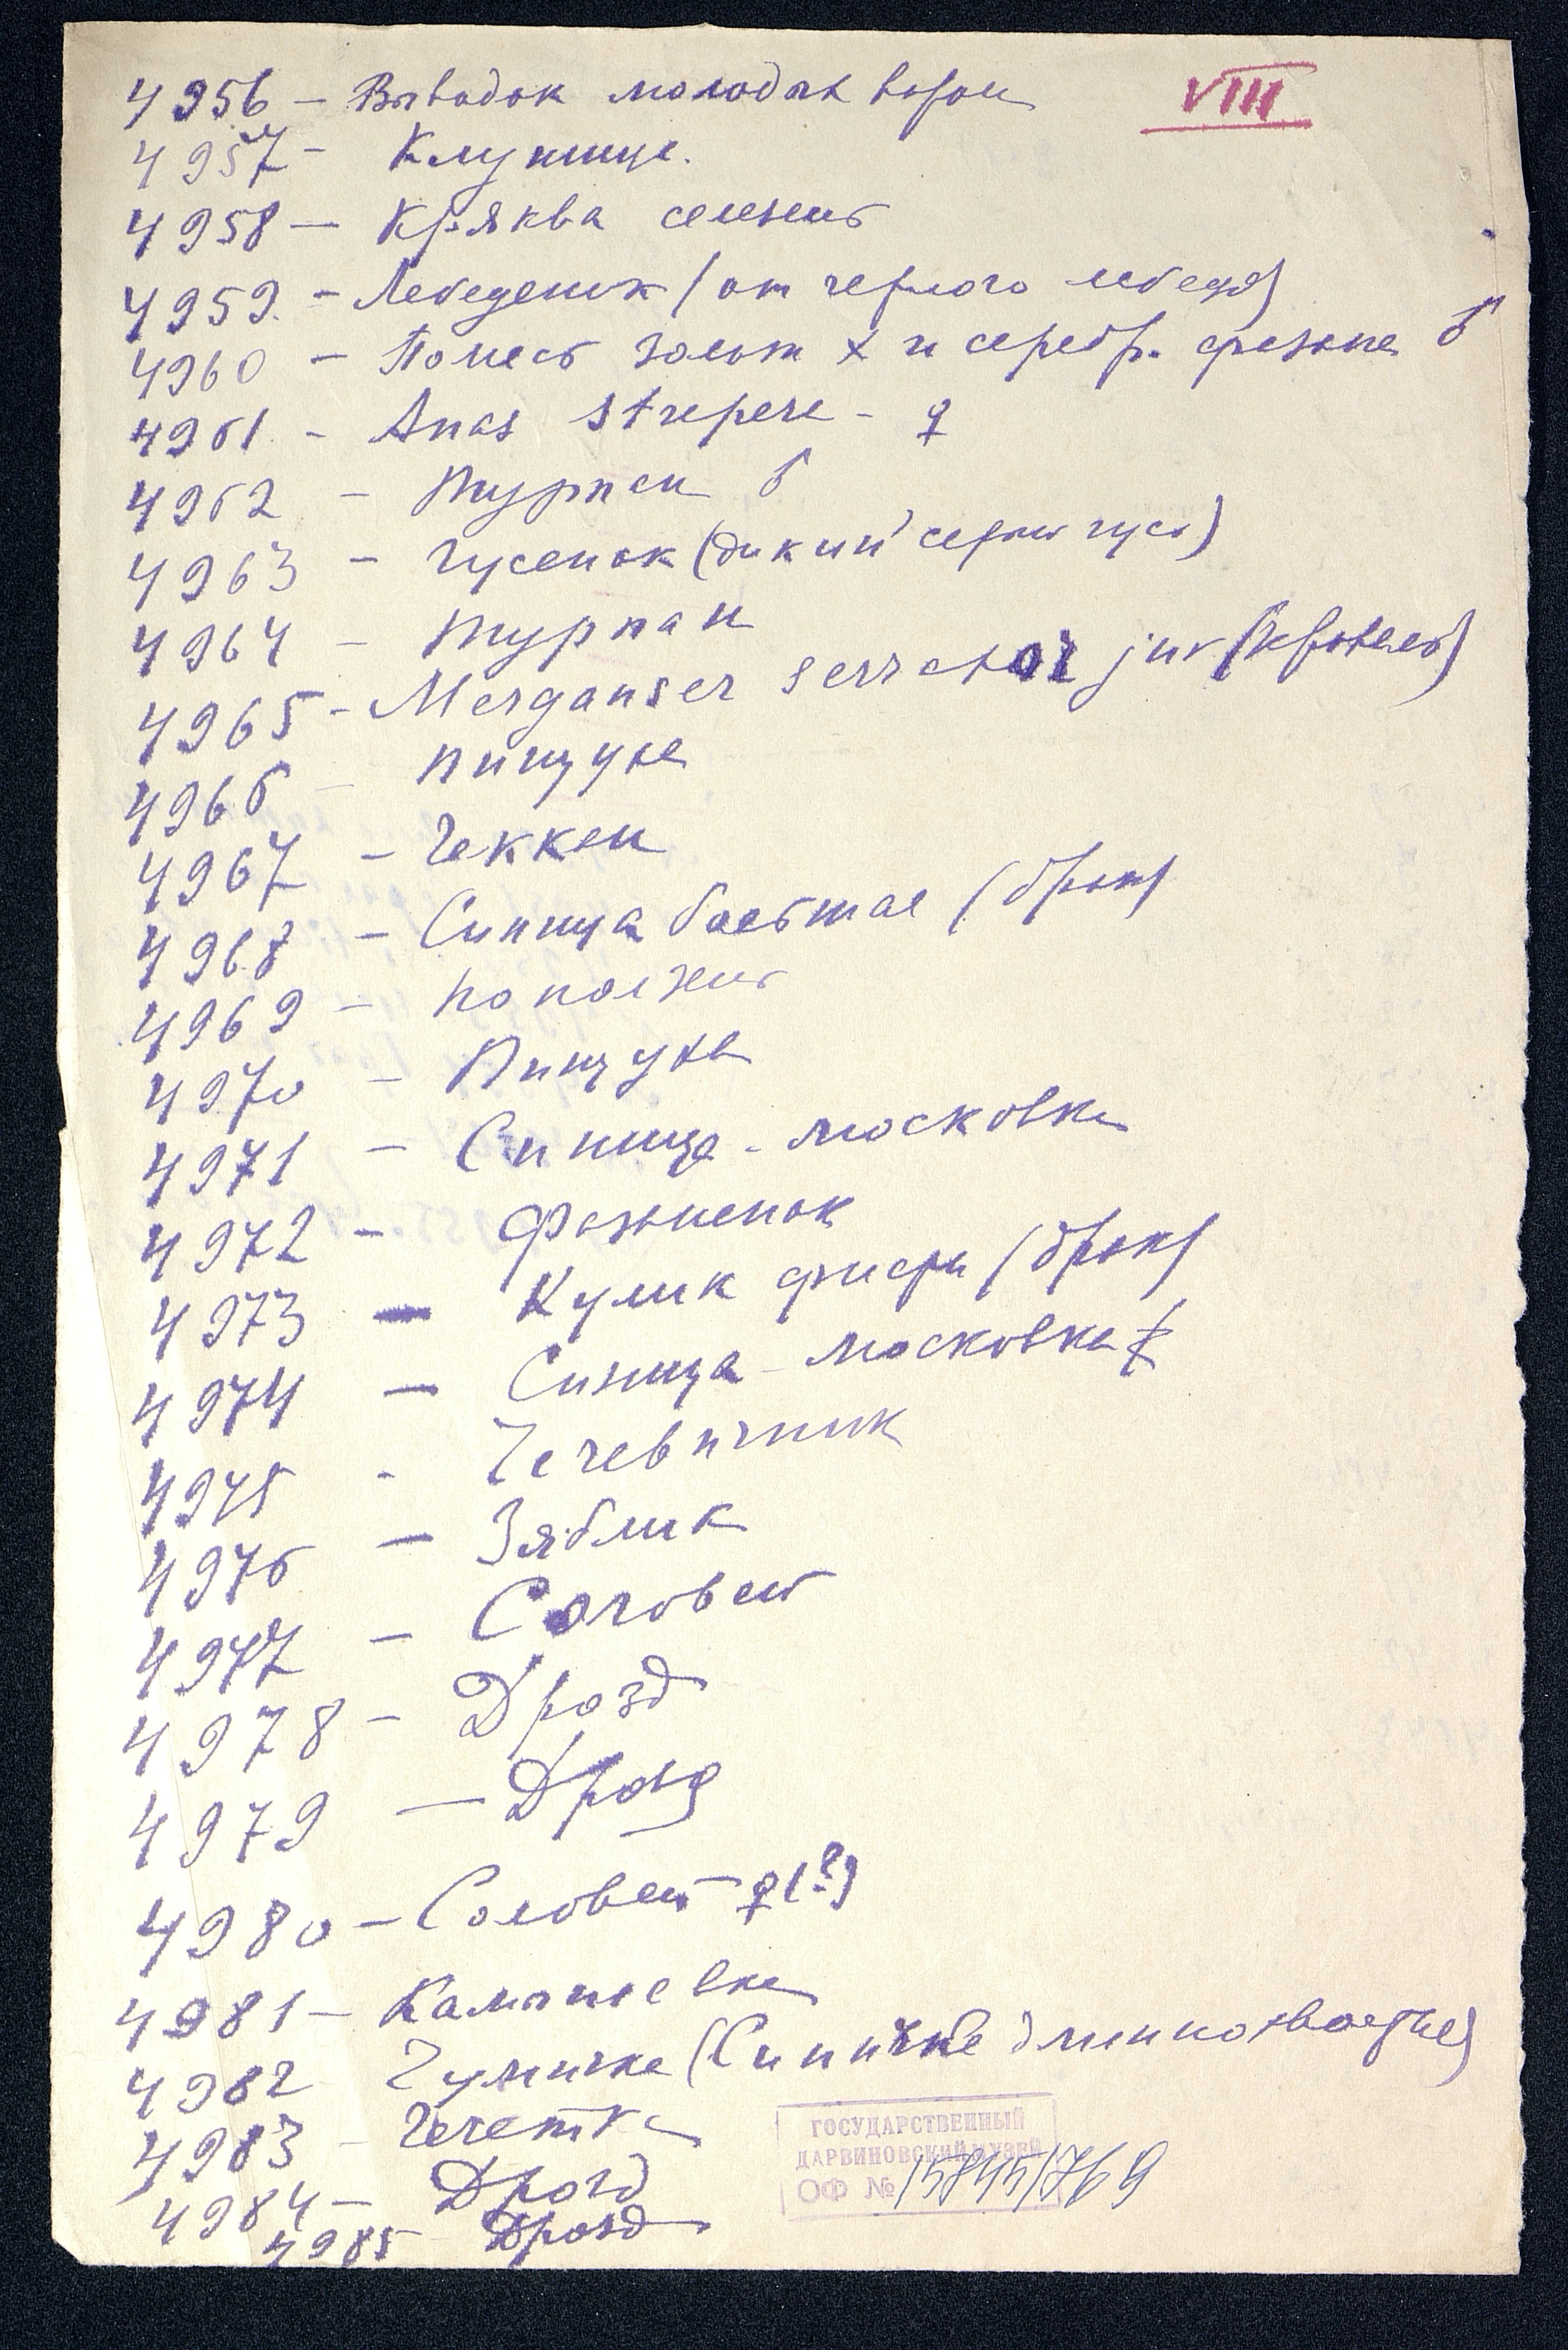 VIII
4956 – Выводок молодых ворон
4957 – Клушица.
4958 – Кряква селезень
4959. – Лебеденок (от черного лебедя)
4960 – Помесь золот × и серебр. фазана ♂
4961. – Anas strepera – ♀
4962 – Турпан ♂
4963 – Гусенок (дикий серый гусь)
4964 – Турпан
4965 – Merganser serrator juv (Крохаль)
4966 – Пищуха
4967 – Чеккан
4968 – Синица большая (брак)
4969 – Поползень
4970 – Пищуха
4971 – Синица - московка
4972 – Фазаненок
4973 – Кулик фифи (брак)
4974 – Синица - московка
4975 - Чечевичник
4976 – Зяблик
4977 – Соловей
4978 – Дрозд
4979 – Дрозд
4980 – Соловей ♀ (?)
4981 – Камышевка
4982 Чумичка (Синичка длиннохвостая)
4983 – Чечетка
4984 – Дрозд
4985 Дрозд
ГОСУДАРСТВЕННЫЙ
ДАРВИНОВСКИЙ МУЗЕЙ
ОФ № 15845/769